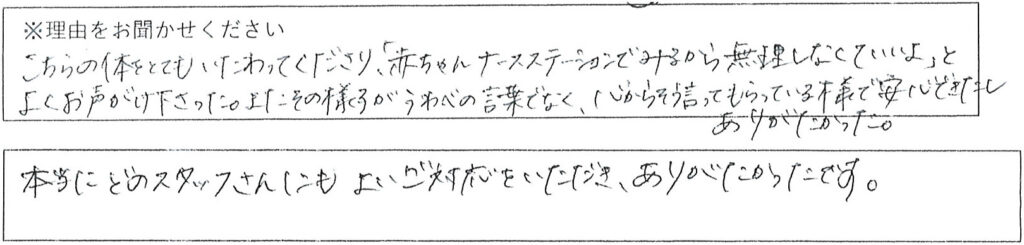 ※理由をお聞かせください
こちらの体をとてもいたわってくださり、「赤ちゃんナースステーションでみるから無理しなくていいよ」と
よくお声がけ下さった。またその様子がうわべの言葉でなく、心からそう言ってもらっている様で安心できたし
ありがたかった。
本当にどのスタッフさんにもよいご対応をいただき、ありがたかったです。